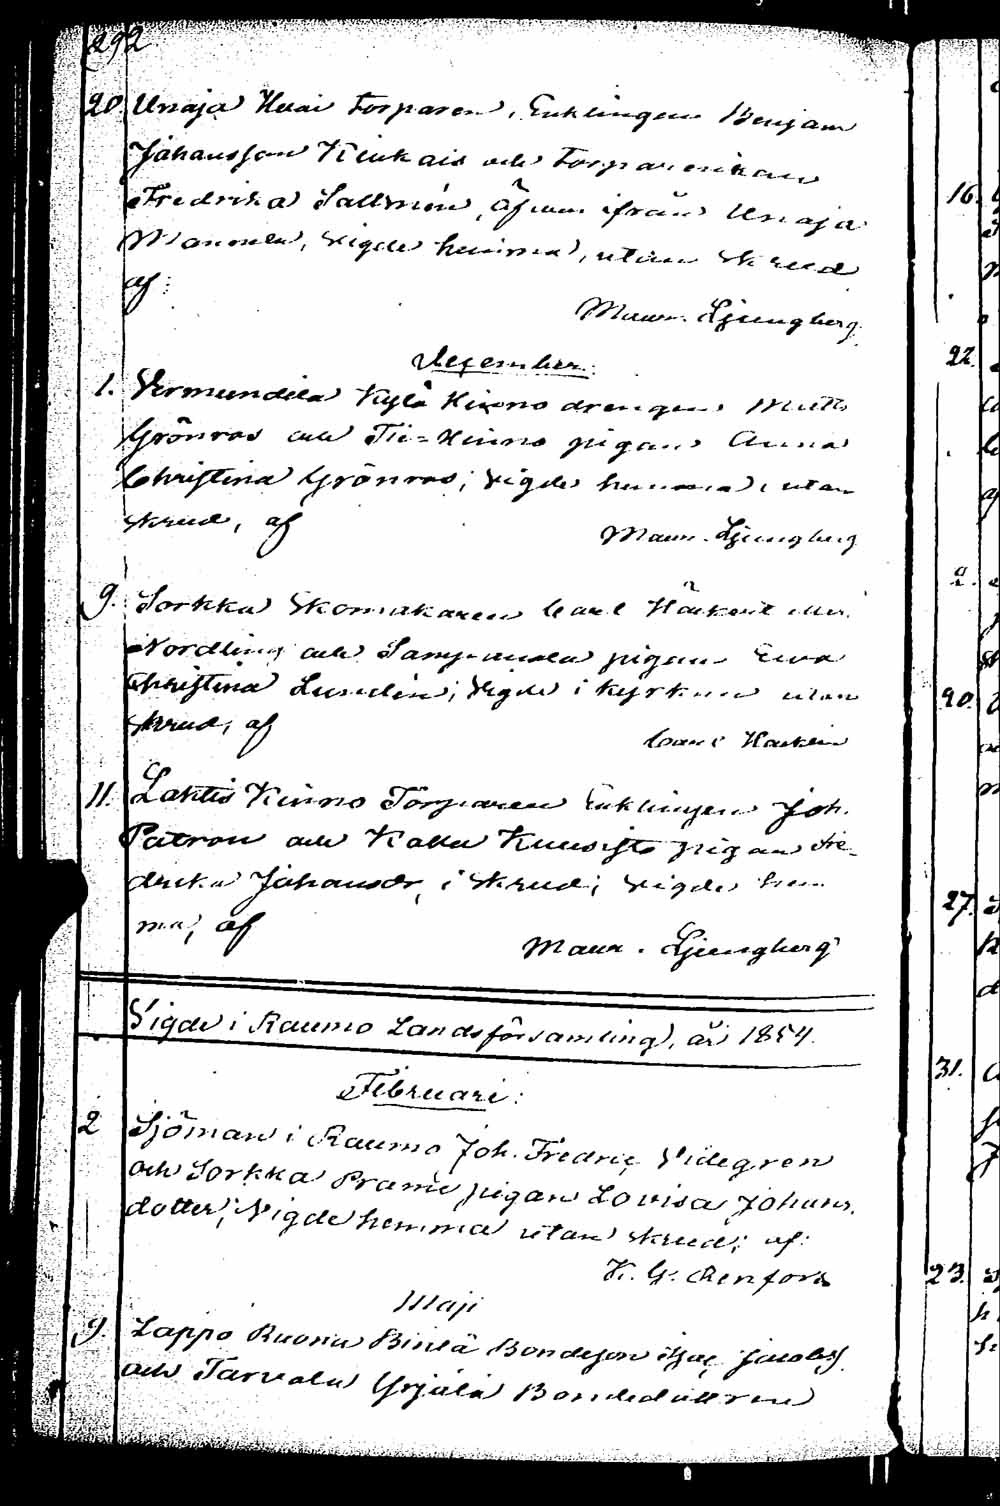 292
20 Unaja Huai Torparen, Enklingen Benjam
Johansson Kiukais och Torparenkan
Fredrika Sallmén, äfven ifrån Unaja
Mannela, vigde hemma, utan skrud
af:
Maur. Ljungberg
December.
1. Vermundila Kylä Kinno drengen Matts
Grönroos och Tie=Kinno pigan Anna
Christina Grönroos; vigde hemma, utan
skrud, af
Maur. Ljungberg
9. Sorkka Skomakaren Carl
Nordling och Sampanala pigan Eva
Christina Lundén; Vigde i kyrkan utan
skrud, af
Carl
11. Lahtis Kinno Torparen Enklingen Joh.
Patron och Kolla Kuusisto pigan Fre-
drika Johansdr, i skrud; vigde hem
ma, af
Maur. Ljungberg
Vigde i Raumo Landsförsamling, år 1854.
Februari:
2 Sjöman i Raumo Joh. Fredric Videgren
och Sorkka Prami pigan Lovisa Johans
dotter; Vigde hemma utan skrud; af:
K. G. Renfors
Maji
9. Lappo Ruona Bondeson Isac Jacobss
och Tarvola Yrjälä Bondedottren
16.
22.
2.
20.
27.
31.
23.